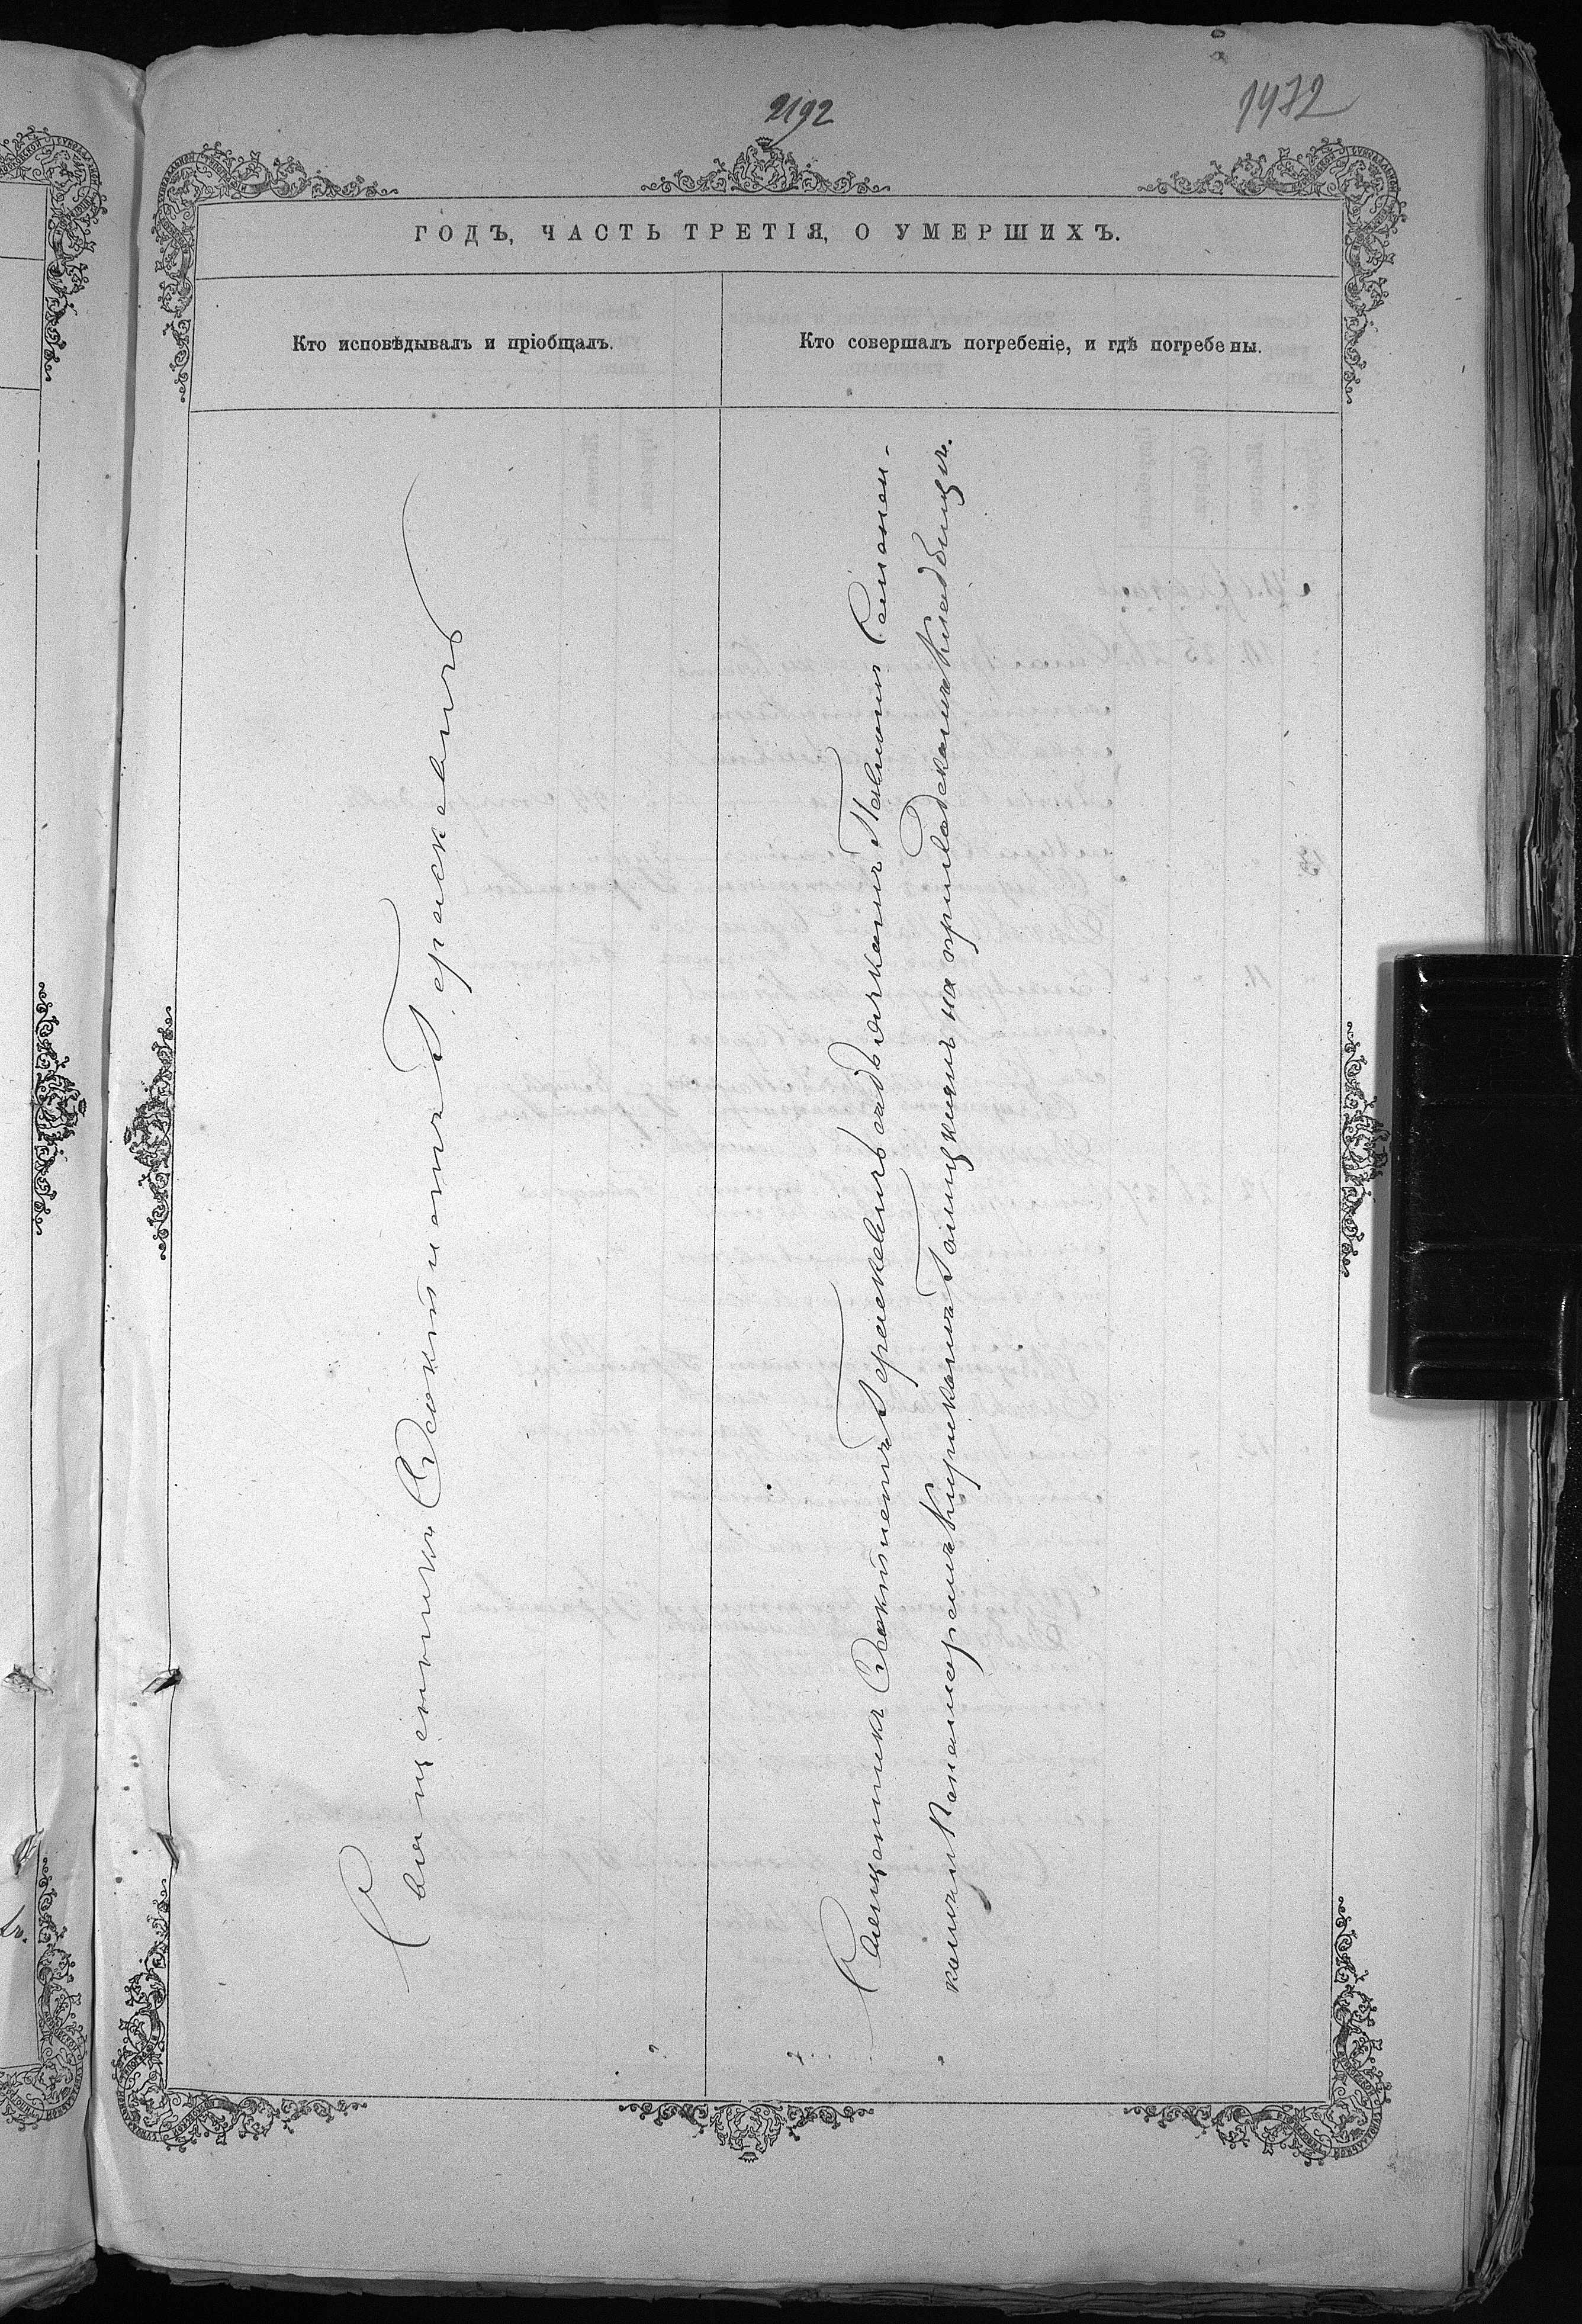 2192
1472
ГОДЪ, ЧАСТЬ ТРЕТІЯ, О УМЕРШИХЪ.
Кто исповѣдывалъ и пріобщалъ.
Кто совершалъ погребеніе, и гдѣ погребены.
Священникъ Феоктистъ Гераскевичъ
Священникъ Феоктистъ Гераскевичъ съ дьячкомъ Павломъ Самаць-
кимъ и Пономаремъ Кирикомъ Гошицкимъ на приходскомъ Кладбищѣ.